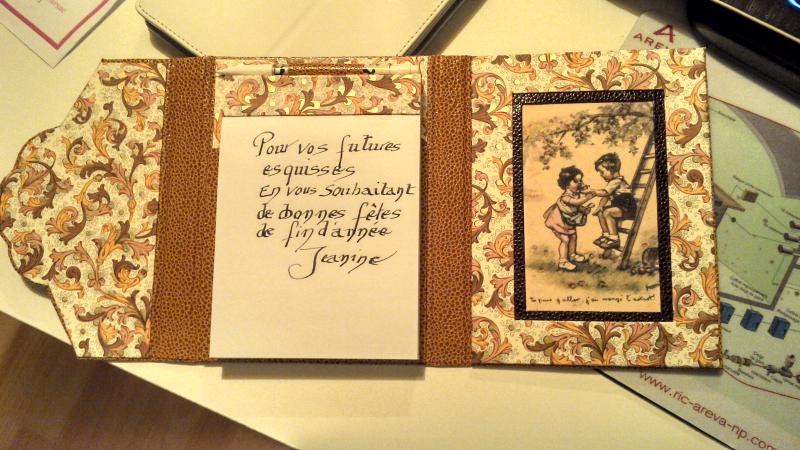 Pour vos futures
esquisses
En vous souhaitant
de bonnes fêtes
de fin d'année
Jeanine
Tu peux j'ai mangé
A
AREV
www.ric-areva-np.com